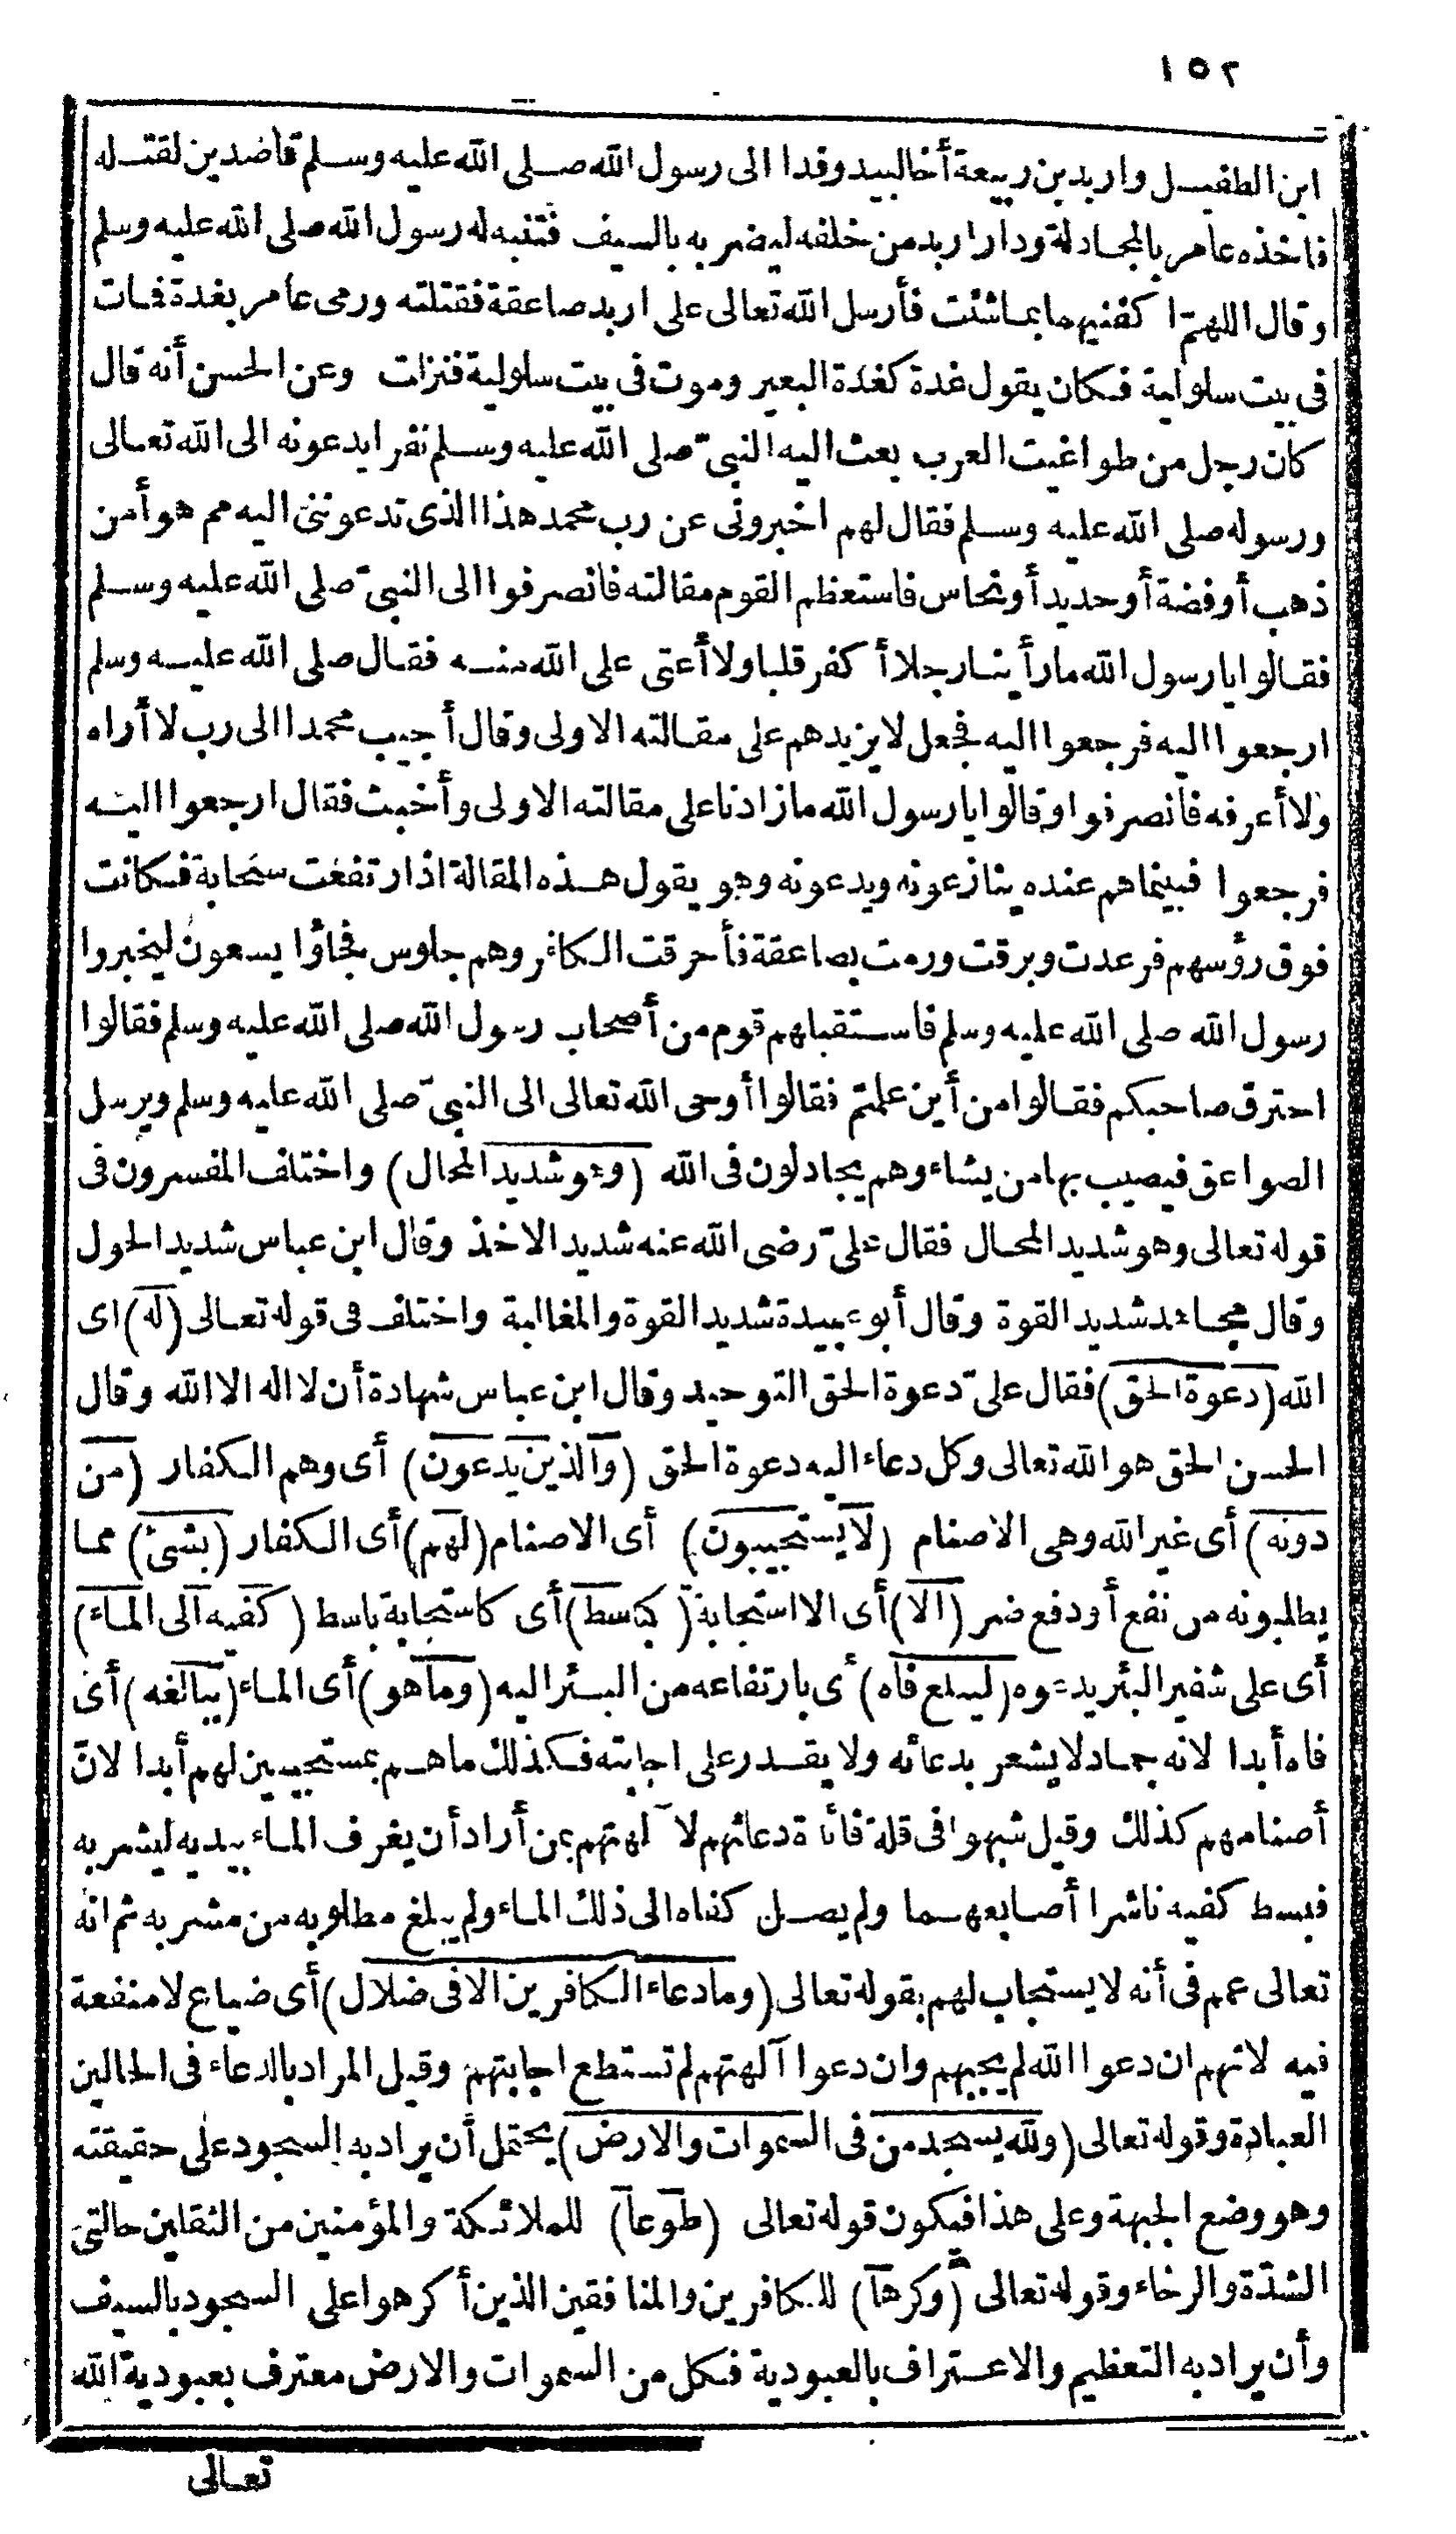 ١٥٢
ابن الطفيل واربد بن ربيعة أخا لبيد وفدا الى رسول الله صلى الله عليه وسلم قاصدين لقتله
فاخذه عامر بالمجادلة ودار اربد من خلفه ليضربه بالسيف فتنبه له رسول الله صلى الله عليه وسلم
وقال اللهمّ اكفنيهما بما شئت فأرسل الله تعالى على اربد صاعقة فقتلته ورمى عامر بغدة فمات
فى بيت سلولية فكان يقول غدة كغدّة البعير وموت فى بيت سلولية فنزلت وعن الحسن أنه قال
كان رجل من طواغيت العرب بعث اليه النبىّ صلى الله عليه وسلم نفرا يدعونه الى الله تعالى
ورسوله صلى الله عليه وسلم فقال لهم اخبرونى عن رب محمد هذا الذى تدعوننى اليه مم هو أمن
ذهب أو فضة أو حديد أو نحاس فاستعظم القوم مقالته فانصرفوا الى النبىّ صلى الله عليه وسلم
فقالوا يا رسول الله ما رأينا رجلا أكفر قلبا ولا أعتى على الله منه فقال صلى الله عليه وسلم
ارجعوا اليه فرجعوا اليه فجعل لا يزيدهم على مقالته الاولى وقال أجيب محمدا الى رب لا أراه
ولا أعرفه فانصرفوا وقالوا يا رسول الله ما زادنا على مقالته الاولى وأخبث فقال ارجعوا اليه
فرجعوا فبينما هم عنده ينازعونه ويدعونه وهو يقول هذه المقالة اذ ارتفعت سحابة فكانت
فوق رؤسهم فرعدت وبرقت ورمت بصاعقة فأحرقت الكافر وهم جلوس فجاؤا يسعون ليخبروا
رسول الله صلى الله عليه وسلم فاستقبلهم قوم من أصحاب رسول الله صلى الله عليه وسلم فقالوا
احترق صاحبكم فقالوا من أين علمتم فقالوا أوحى الله تعالى الى النبىّ صلى الله عليه وسلم ويرسل
الصواعق فيصيب بها من يشاء وهم يجادلون فى الله (وهو شديد المحال) واختلف المفسرون فى
قوله تعالى وهو شديد المحال فقال علىّ رضى الله عنه شديد الاخذ وقال ابن عباس شديد الحول
وقال مجاهد شديد القوة وقال أبو عبيدة شديد القوة والمغالبة واختلف فى قوله تعالى (له) اى
الله (دعوة الحق) فقال علىّ دعوة الحق التوحيد وقال ابن عباس شهادة أن لا اله الا الله وقال
الحسن الحق هو الله تعالى وكل دعاء اليه دعوة الحق (والذين يدعون) أى وهم الكفار (من
دونه) أى غير الله وهى الاصنام (لا يستجيبون) أى الاصنام (لهم) أى الكفار (بشئ) مما
يطلبونه من نفع أو دفع ضر (الا) أى الا استجابة (كباسط) أى كاستجابة باسط (كفيه الى الماء)
أى على شفير البئر يدعوه (ليبلغ فاه) أى بارتفاعه من البئر اليه (وما هو) أى الماء (ببالغه) أى
فاه أبدا لانه جماد لا يشعر بدعائه ولا يقدر على اجابته فكذلك ما هم بمستجيبين لهم أبدا لانّ
أصنامهم كذلك وقيل شبهوا فى قلة فائدة دعائهم لآلهتهم بمن أراد أن يغرف الماء بيديه ليشربه
فبسط كفيه ناشرا أصابعهما ولم يصل كفاه الى ذلك الماء ولم يبلغ مطلوبه من مشربه ثم انه
تعالى عمم فى أنه لا يستجاب لهم بقوله تعالى (وما دعاء الكافرين الا فى ضلال) أى ضياع لا منفعة
فيه لانهم ان دعوا الله لم يجبهم وان دعوا آلهتهم لم تستطع اجابتهم وقيل المراد بالدعاء فى الحالين
العبادة وقوله تعالى (ولله يسجد من فى السموات والارض) يحتمل أن يراد به السجود على حقيقته
وهو وضع الجبهة وعلى هذا فيكون قوله تعالى (طوعا) للملائكة والمؤمنين من الثقلين حالتى
الشدّة والرخاء وقوله تعالى (وكرها) للكافرين والمنافقين الذين أكرهوا على السجود بالسيف
وأن يراد به التعظيم والاعتراف بالعبودية فكل من السموات والارض معترف بعبودية الله
تعالى